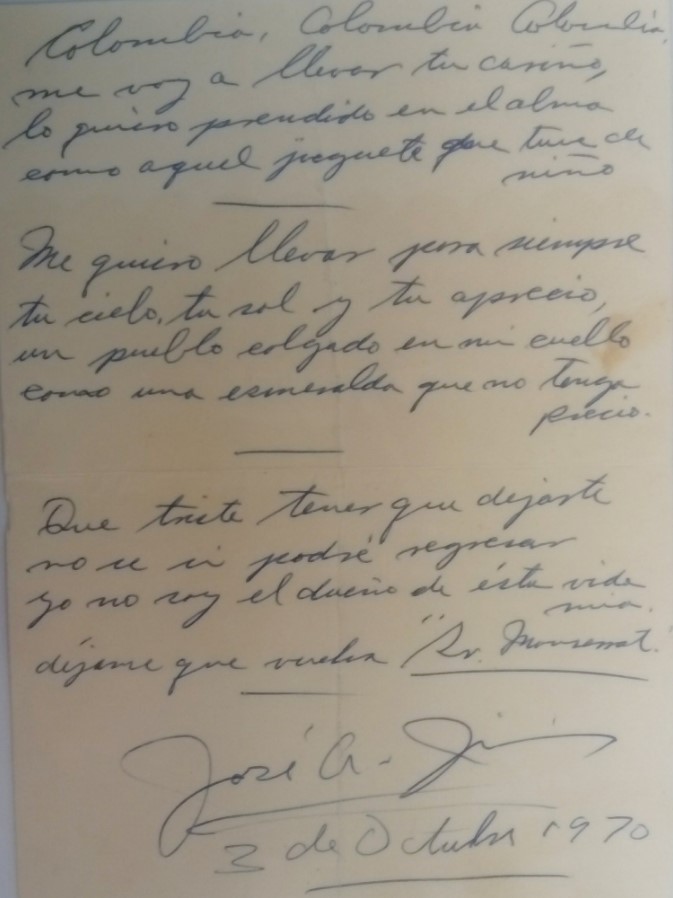 Colombia, Colombia Colombia,
me voy a llevar tu cariño,
lo quiero prendido en el alma
como aquel juguete que tuve de
niño
Me quiero llevar para siempre
tu cielo, tu sol y tu aprecio,
un pueblo colgado en mi cuello
como una esmeralda que no tenga
precio.
Que triste tener que dejarte
no se si podré regresar
yo no soy el dueño de ésta vida
mia.
déjame que vuelva "Sr. Monserrat.
José A. Ji
3 de Octubre 1970